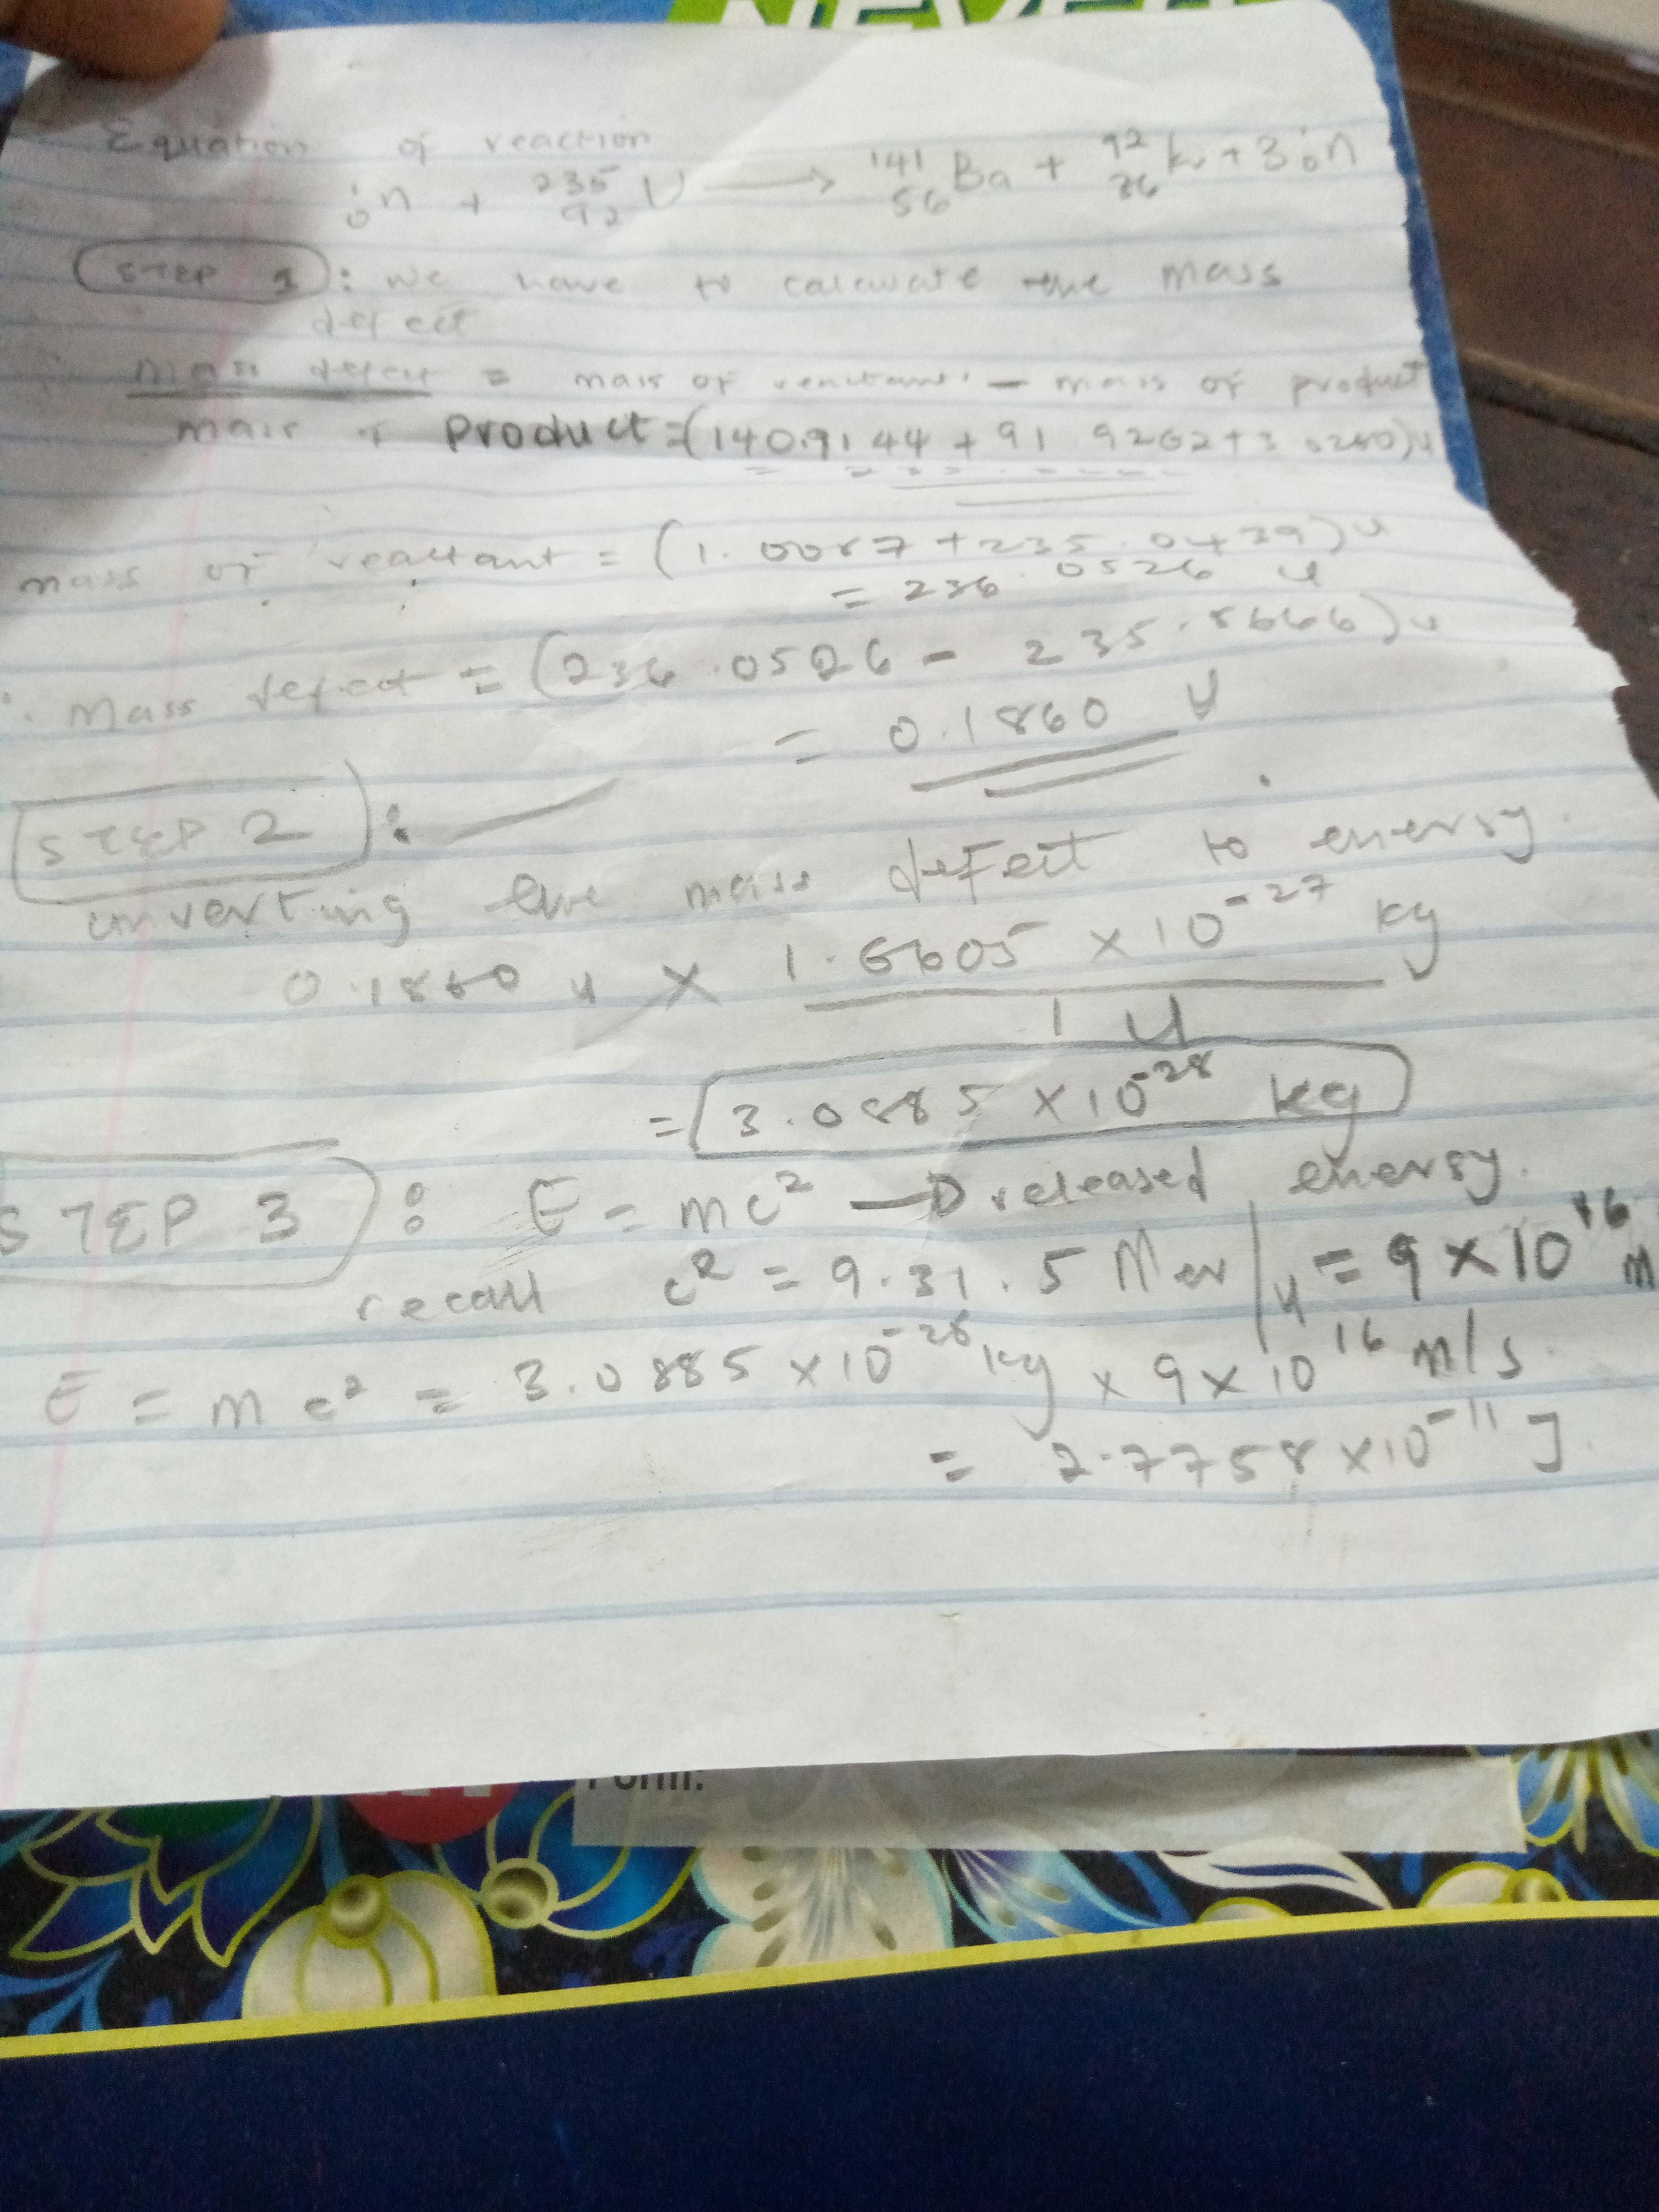 NEVER
Equation of reaction
¹₀n + ²³⁵₉₂U ⟶ ¹⁴¹₅₆Ba + ⁹²₃₆kr + 3¹₀n
STEP 1 : We have to calculate the mass
defect
mass defect = mass of reactant - mass of product
mass of product = (140.9144 + 91.9262 + 3.0260)u
mass of reactant = (1.0087 + 235.0439)u
= 236.0526 u
∴ Mass defect = (236.0526 - 235.8666)u
= 0.1860 u
STEP 2 :
converting the mass defect to energy.
0.1860 u × 1.6605 × 10⁻²⁷ kg
1 u
= 3.0885 × 10⁻²⁸ kg
STEP 3 : E = mc² → released energy.
recall c² = 9.31.5 Mev/u = 9 × 10¹⁶ m
E = mc² = 3.0885 × 10⁻²⁸ kg × 9 × 10¹⁶ m/s
= 2.7758 × 10⁻¹¹ J
Form: